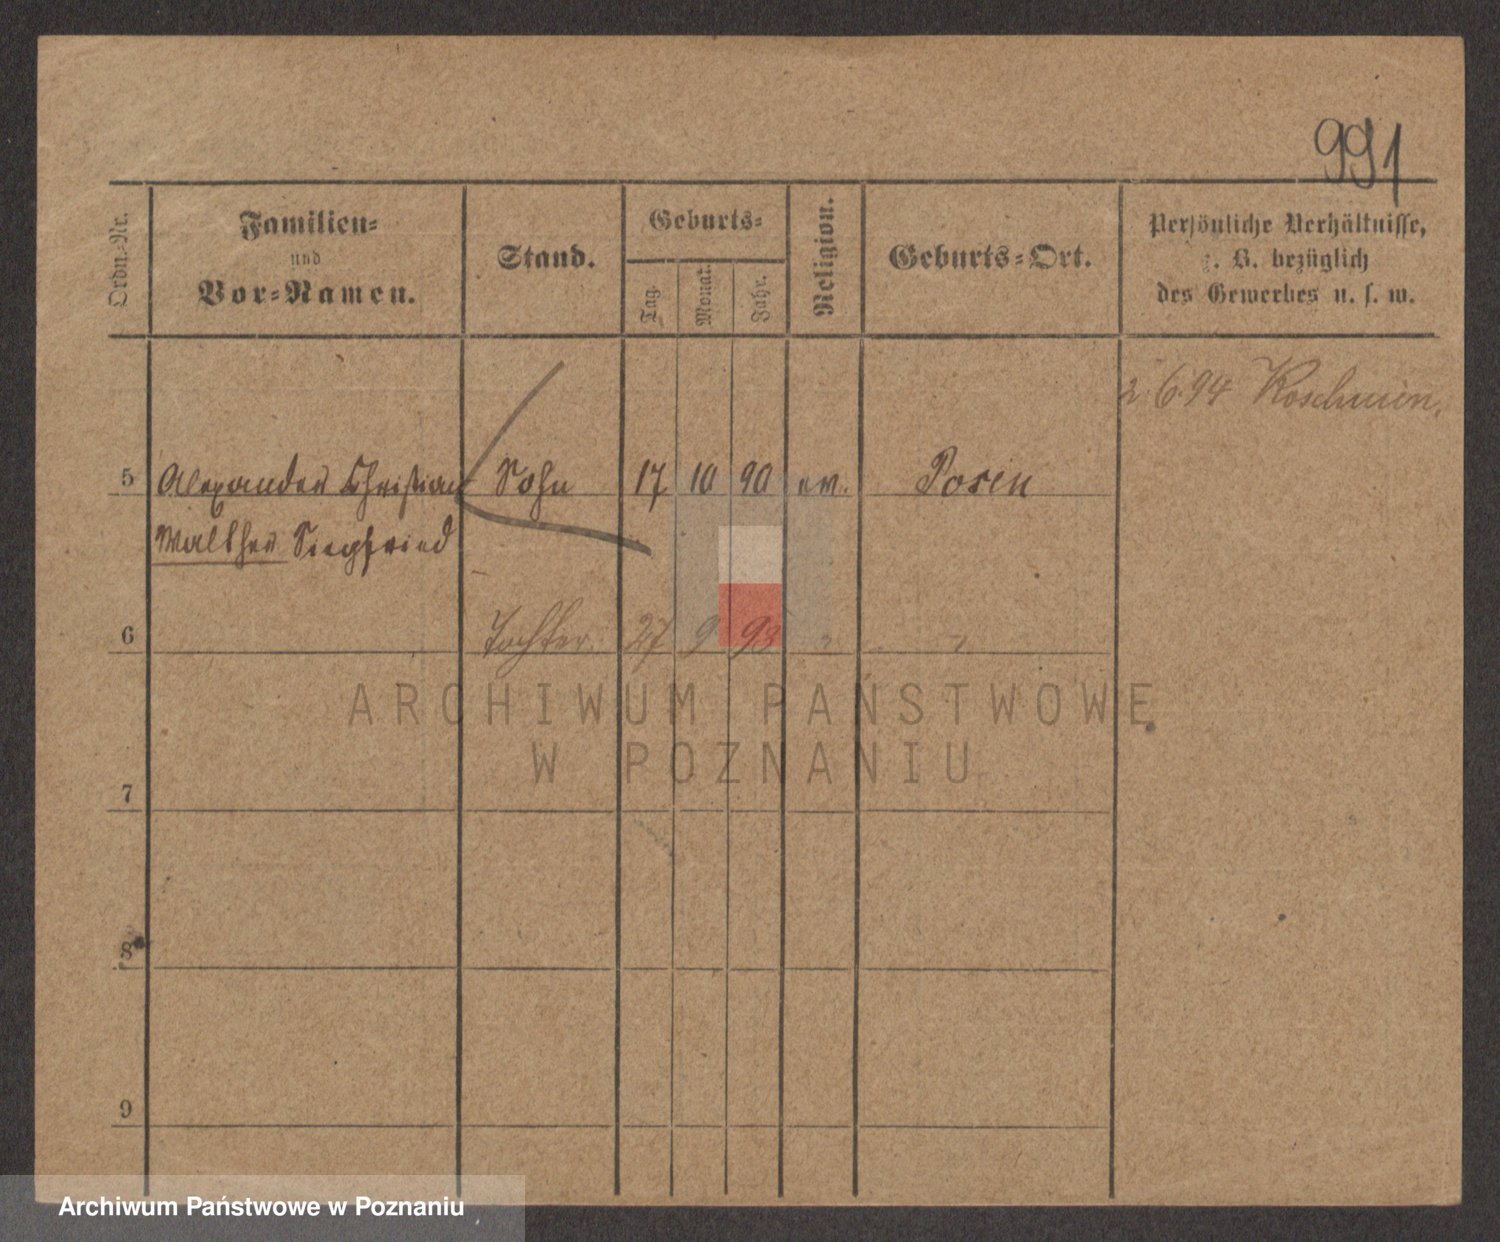 991
Ordn.-Nr.
Familien-
und
Vor-Namen.
Stand.
Geburts-
Tag.
Monat.
Jahr.
Religion.
Geburts-Ort.
Persönliche Verhältnisse,
z. B. bezüglich
des Gewerbes u. s. w.
2 6 94 Koschmin,
5 Alexander Christian Sohn 17 10 90 ev. Posen
Walther Siegfried
6 Tochter 27 9 93 " "
ARCHIWUM PAŃSTWOWE
W POZNANIU
7
8
9
Archiwum Państwowe w Poznaniu